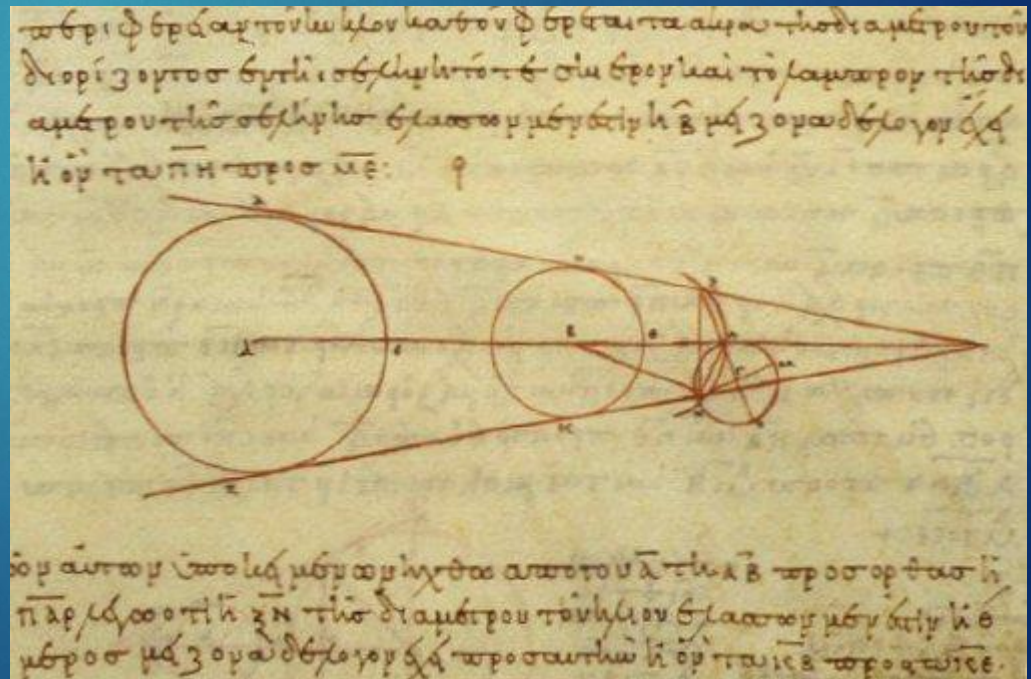 τὸν κύκλον καθ' ὃν φέρεται τὰ ἄκρα τῆς διαμέτρου τοῦ
διορίζοντος ἐν τῆι σελήνηι τό τε σκιερὸν καὶ τὸ λαμπρὸν τῆς δι
αμέτρου τῆς σελήνης ἐλάσσων μέν ἐστιν ἢ β̅ μείζονα δὲ λόγον ἔχει
ἢ ὃν τὰ π̅η̅ πρὸς μ̅ε̅:
αὐτῶν ὑποκειμένων ἤχθω ἀπὸ τοῦ α̅ τῆι α̅β̅ πρὸς ὀρθὰς ἡ
π̅α̅ρ̅ λέγω ὅτι ἡ ξ̅ν̅ τῆς διαμέτρου τοῦ ἡλίου ἐλάσσων μέν ἐστιν ἢ
μέρος μείζονα δὲ λόγον ἔχει πρὸς αὐτὴν ἢ ὃν τὰ κ̅β̅ πρὸς